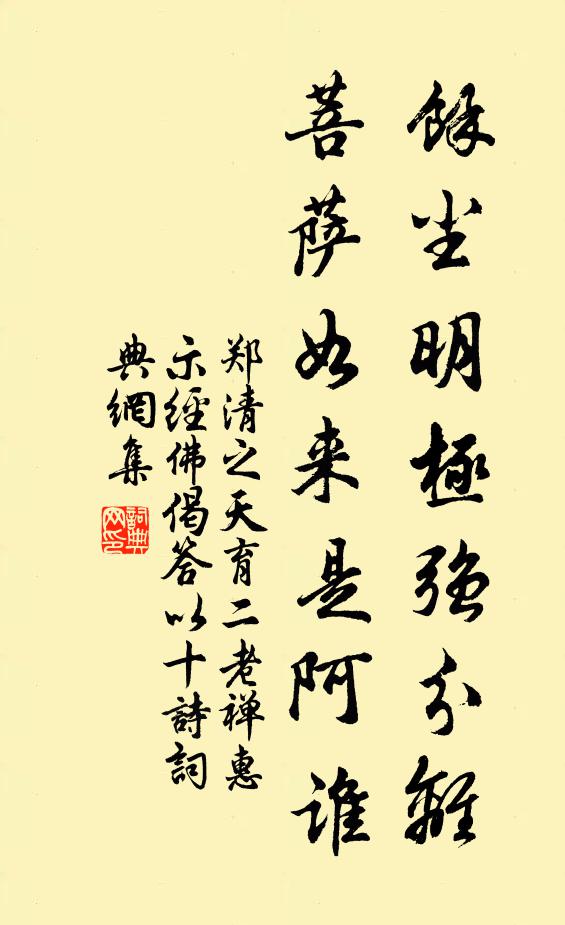 餘尘明極強分離
菩萨如来是阿谁
郑清之天育二老禅惠
示經佛偈答以十詩詞
典網集
詞典网印